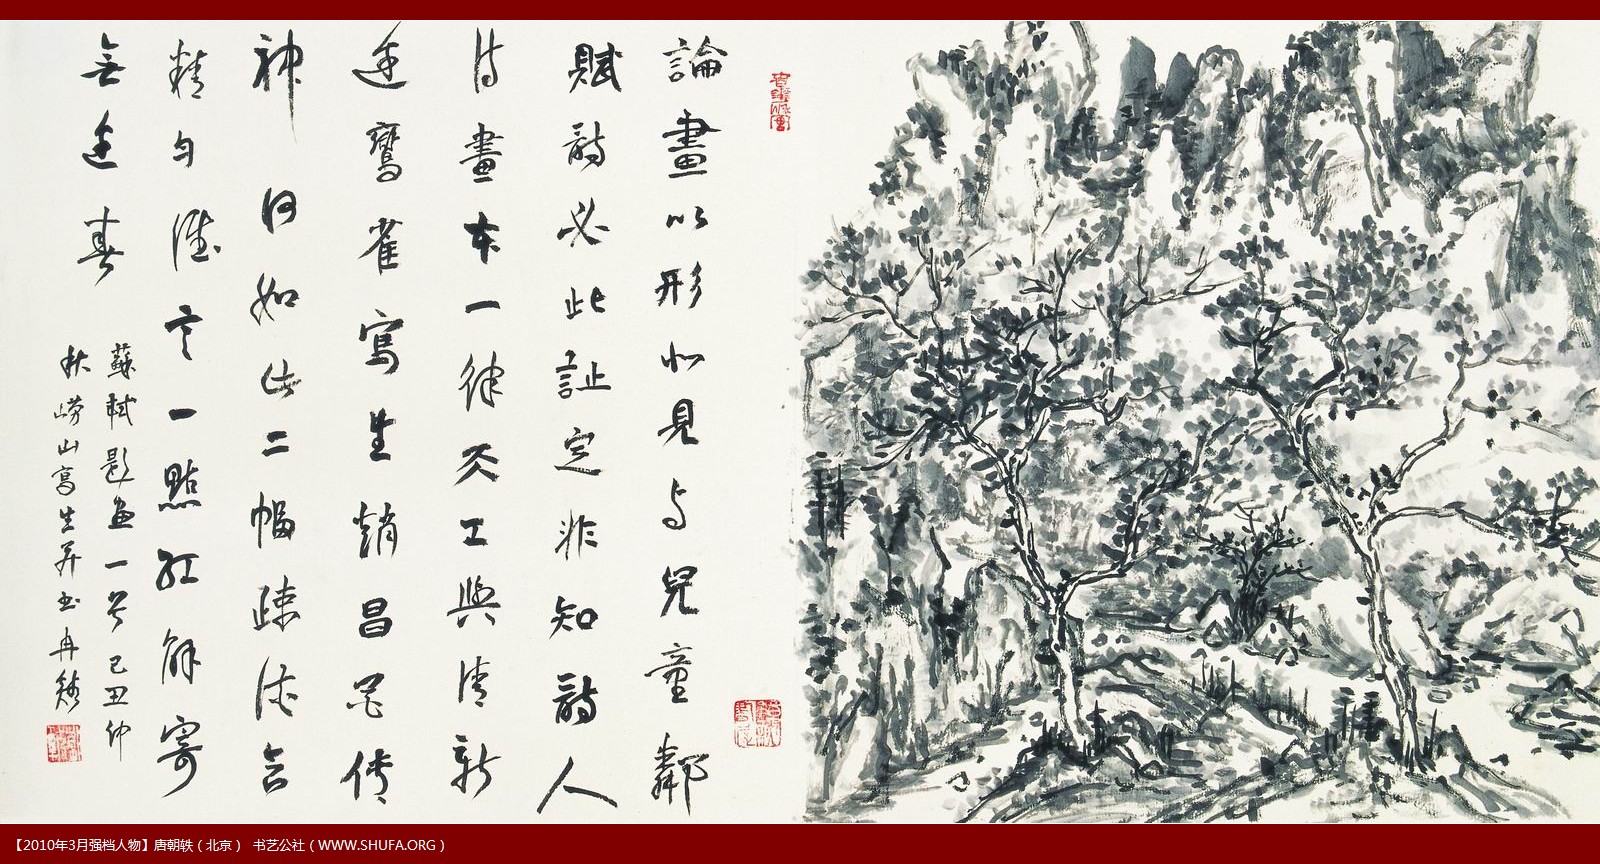 論畫以形似見与兒童鄰
賦詩必此訨定非知詩人
詩畫本一律天工與清新
边鸞雀寫生趙昌花傳
神何如此二幅疎淡含
精勻誰言一點紅解寄
無边春
蘇軾題畫一首己丑仲
秋嶗山寫生并书
【2010年3月强档人物】唐朝轶（北京） 书艺公社（WWW.SHUFA.ORG）